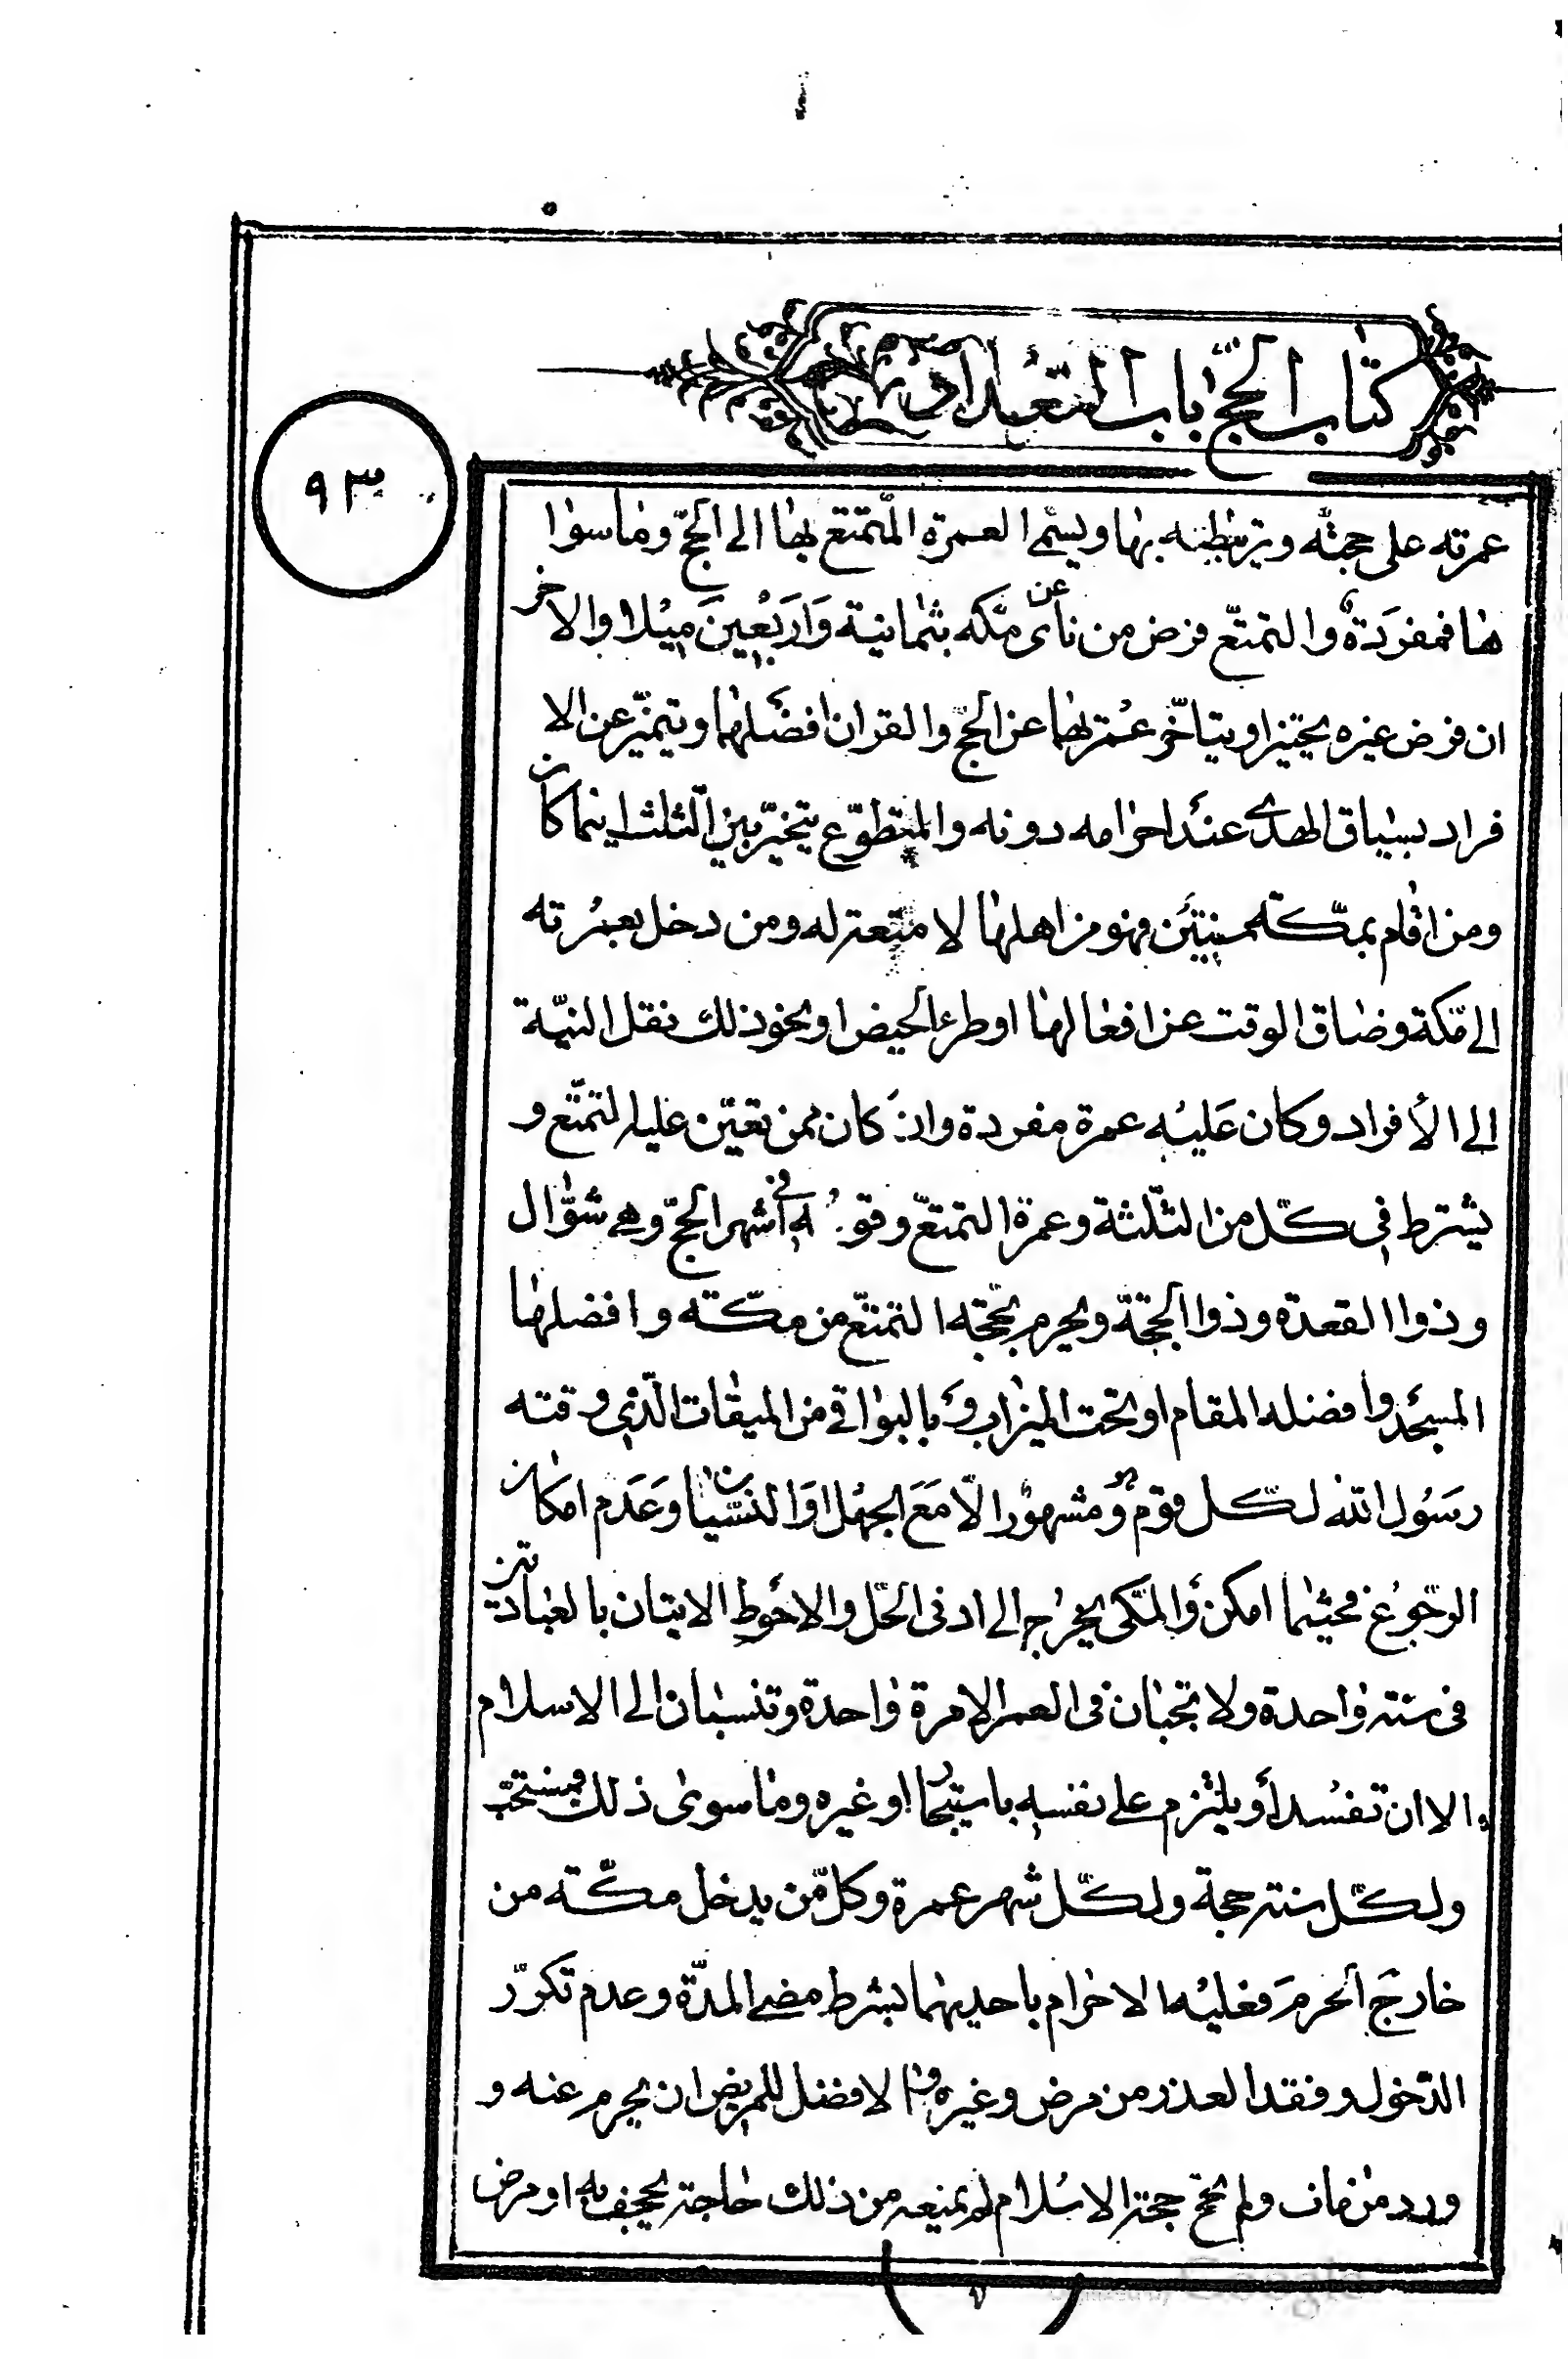 كتاب الحج باب التعداد
٩٣
عمرته على حجته و يرتبطنه بها و يسمى العمرة المتمتع بها الى الحج و ما سوا
ها فمفردة و التمتع فرض من نأى عن مكه بثمانية وَاَربَعينَ ميلا والاخر
ان فرض غيره يحتيز او يتاخّر عمرتهما عن الحج و القران افضلهما و يتميّز عن الا
فراد بسياق الهدى عند احرامه دونه و المتطوّع يتخيّر بين الثلث اينما كان
ومن اقام بمكّته سنتين فهو من اهلها لا متعة له و من دخل بعمرته
الى مكة و ضاق الوقت عن افعالها او طرء الحيض او نحو ذلك نقل النيّة
الى الأفراد و كان عَليه عمرة مفردة وان كان ممن تعيّن عليه التمتّع و
يشترط فى كلّ من الثلثة و عمرة التمتعّ وقو له فى أشهر الحجّ و هى شوّال
و ذوا القعدة و ذوا الحجّة و يحرم بحجّته التمتّع من مكّته و افضلها
المسجد و افضله المقام او تحت الميزاب و بالبواقى من الميقات الّذى وقته
رسَول الله لكل قوم و هو مشهور الّا مَعَ الجهل او النسيان و عَدم امكان
الرّجوع فحيثما امكن و المكّى يخرج الى ادنى الحلّ و الاحوط الاتيان بالعبادتين
فى سنته واحدة و لا تجبان فى العمر الا مرة واحدة و تنسبان الى الاسلام
الا ان تفسد أو يلتزم على نفسه باستيجار او غيره و ما سوى ذلك فمستحبّ
و لكلّ سنته حجة و لكلّ شهر عمرة و كل من يدخل مكّته من
خارجَ الحرمَ فعليه الاحرام باحديهما بشرط مضى المدّة و عدم تكرّر
الدّخول و فقد العذر من مرض و غيره و الافضل للمريض ان يحرم عنه و
ورد من مات و لم يحجّ حجة الاسلام لم يمنعه من ذلك حاجة يجحف به او مرض
٧